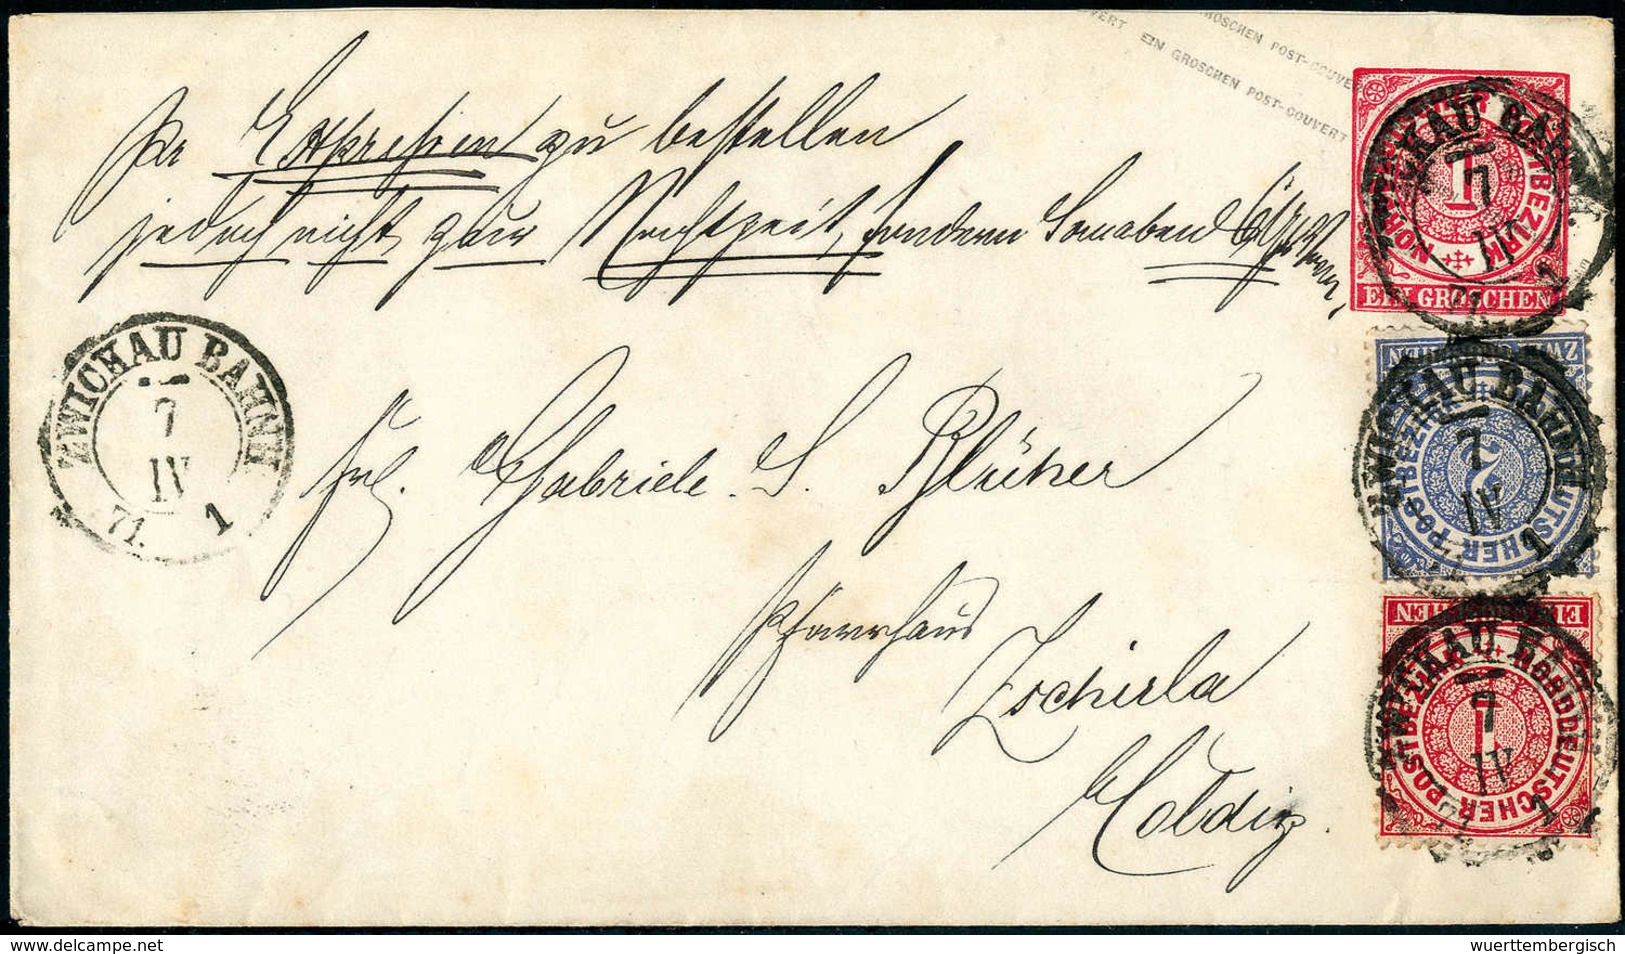 EIN GROSCHEN POST-COUVERT
GROSCHEN POST-COUVERT
pr Expressen zu bestellen
jedoch nicht zur Nachtzeit, sondern Sonnabend
NORDDEUTSCHER POSTBEZIRK
1
EIN GROSCHEN
ZWICKAU BAHNH
7
IV
71. 1
ZWICKAU BAHNH
7
IV
71. 1
NORDDEUTSCHER POSTBEZIRK
2
ZWEI GROSCHEN
ZWICKAU BAHNH
7
IV
1
Frl. Gabriele S. Blüher
Pfarrhaus
Zschirla
Colditz.
NORDDEUTSCHER POSTBEZIRK
1
EIN GROSCHEN
ZWICKAU BAHNH
7
IV
71. 1
Copyright by delcampe.net
wuerttembergisch